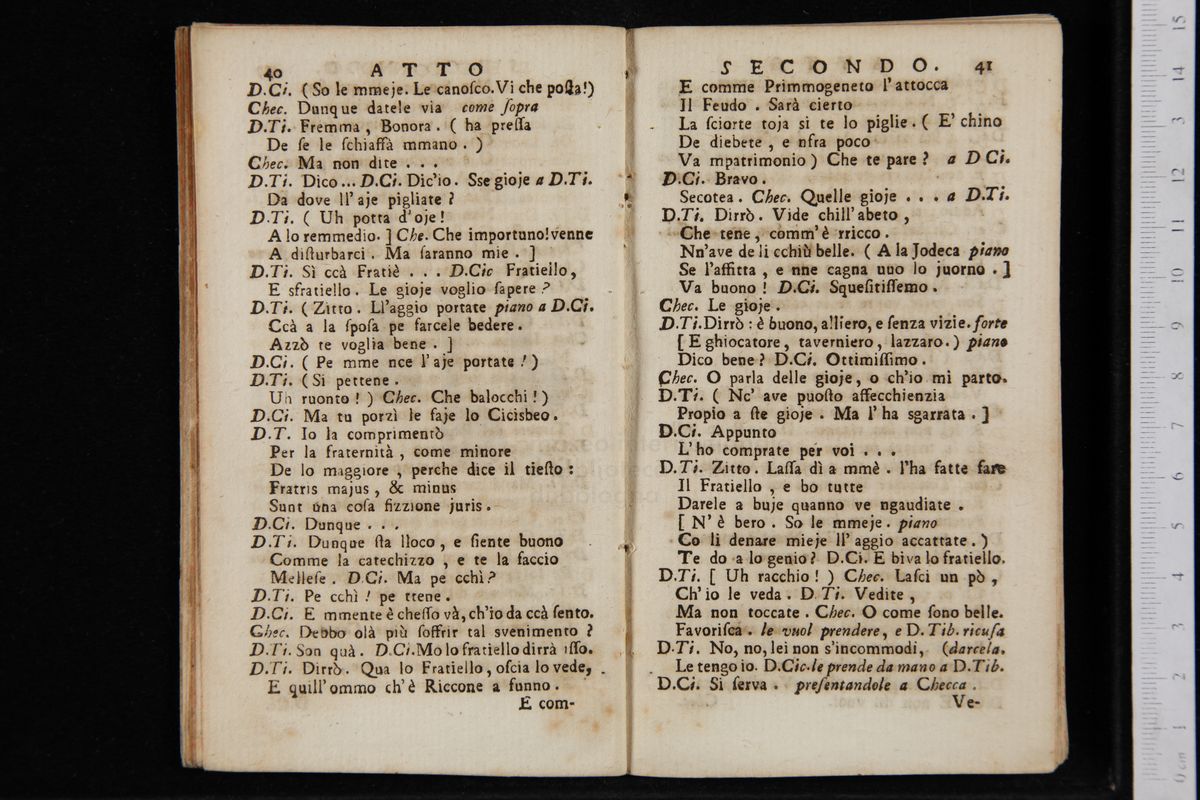 40 ATTO
D.Ci. (So le mmeje. Le canoſco. Vi che poſta!)
Chec. Dunque datele via come ſopra
D.Ti. Fremma, Bonora. (ha preſſa
De ſe le ſchiaffà mmano.)
Chec. Ma non dite . . .
D.Ti. Dico ... D.Ci. Dic'io. Sse gioje a D.Ti.
Da dove ll'aje pigliate?
D.Ti. (Uh potta d'oje!
A lo remmedio. ] Che. Che importuno! venne
A diſturbarci. Ma ſaranno mie. ]
D.Ti. Sì ccà Fratiè . . . D.Cic Fratiello,
E sfratiello. Le gioje voglio ſapere?
D.Ti. (Zitto. Ll'aggio portate piano a D.Ci.
Ccà a la ſpoſa pe farcele bedere.
Azzò te voglia bene. ]
D.Ci. (Pe mme nce l'aje portate!)
D.Ti. (Si pettene.
Uh ruonto!) Chec. Che balocchi!)
D.Ci. Ma tu porzì le faje lo Cicisbeo.
D.T. Io la comprimentò
Per la fraternità, come minore
De lo maggiore, perche dice il tieſto:
Fratris majus, & minus
Sunt una coſa fizzione juris.
D.Ci. Dunque . . .
D.Ti. Dunque ſta lloco, e ſiente buono
Comme la catechizzo, e te la faccio
Melleſe. D.Ci. Ma pe cchì?
D.Ti. Pe cchì! pe ttene.
D.Ci. E mmente è cheſſo và, ch'io da ccà ſento.
Chec. Debbo olà più ſoffrir tal svenimento?
D.Ti. Son quà. D.Ci. Mo lo fratiello dirrà iſſo.
D.Ti. Dirrò. Qua lo Fratiello, oſcia lo vede,
E quill'ommo ch'è Riccone a funno.
E com-
SECONDO. 41
E comme Primmogeneto l'attocca
Il Feudo. Sarà cierto
La ſciorte toja si te lo piglie. (E' chino
De diebete, e nfra poco
Va mpatrimonio) Che te pare? a D Ci.
D.Ci. Bravo.
Secotea. Chec. Quelle gioje . . . a D.Ti.
D.Ti. Dirrò. Vide chill'abeto,
Che tene, comm'è rricco.
Nn'ave de li cchiù belle. (A la Jodeca piano
Se l'affitta, e nne cagna uno lo juorno. ]
Va buono! D.Ci. Squeſitiſſemo.
Chec. Le gioje.
D.Ti. Dirrò: è buono, alliero, e ſenza vizie. forte
[E ghiocatore, taverniero, lazzaro.) piano
Dico bene? D.Ci. Ottimiſſimo.
Chec. O parla delle gioje, o ch'io mi parto.
D.Ti. (Nc'ave puoſto affecchienzia
Propio a ſte gioje. Ma l'ha sgarrata. ]
D.Ci. Appunto
L'ho comprate per voi . . .
D.Ti. Zitto. Laſſa dì a mmè. l'ha fatte fare
Il Fratiello, e bo tutte
Darele a buje quanno ve ngaudiate.
[N'è bero. So le mmeje. piano
Co li denare mieje ll'aggio accattate.)
Te do a lo genio? D.Ci. E biva lo fratiello.
D.Ti. [Uh racchio!) Chec. Laſci un pò,
Ch'io le veda. D.Ti. Vedite,
Ma non toccate. Chec. O come ſono belle.
Favoriſca. le vuol prendere, e D.Tib. ricuſa
D.Ti. No, no, lei non s'incommodi, (darcela.
Le tengo io. D.Cic. le prende da mano a D.Tib.
D.Ci. Si ſerva. preſentandole a Checca.
Ve-